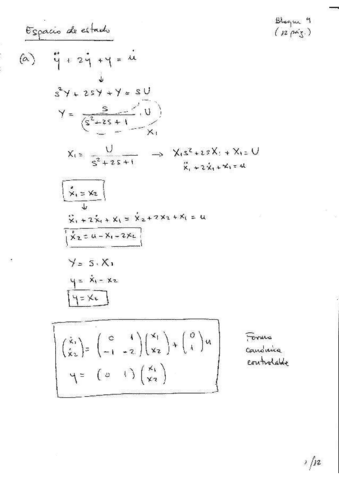 Bloque 4
Espacio de estado
(12 pág.)
(a) ÿ + 2ẏ + y = u̇
↓
s²Y + 2sY + Y = sU
Y = s / (s² + 2s + 1) · U
X₁
X₁ = U / (s² + 2s + 1) → X₁s² + 2sX₁ + X₁ = U
ẍ₁ + 2ẋ₁ + x₁ = u
ẋ₁ = x₂
↓
ẍ₁ + 2ẋ₁ + x₁ = ẋ₂ + 2x₂ + x₁ = u
ẋ₂ = u - x₁ - 2x₂
Y = s · X₁
y = ẋ₁ = x₂
y = x₂
(ẋ₁ ẋ₂) = (0 1 -1 -2)(x₁ x₂) + (0 1) u
y = (0 1)(x₁ x₂)
Forma
canónica
controlable
1/12